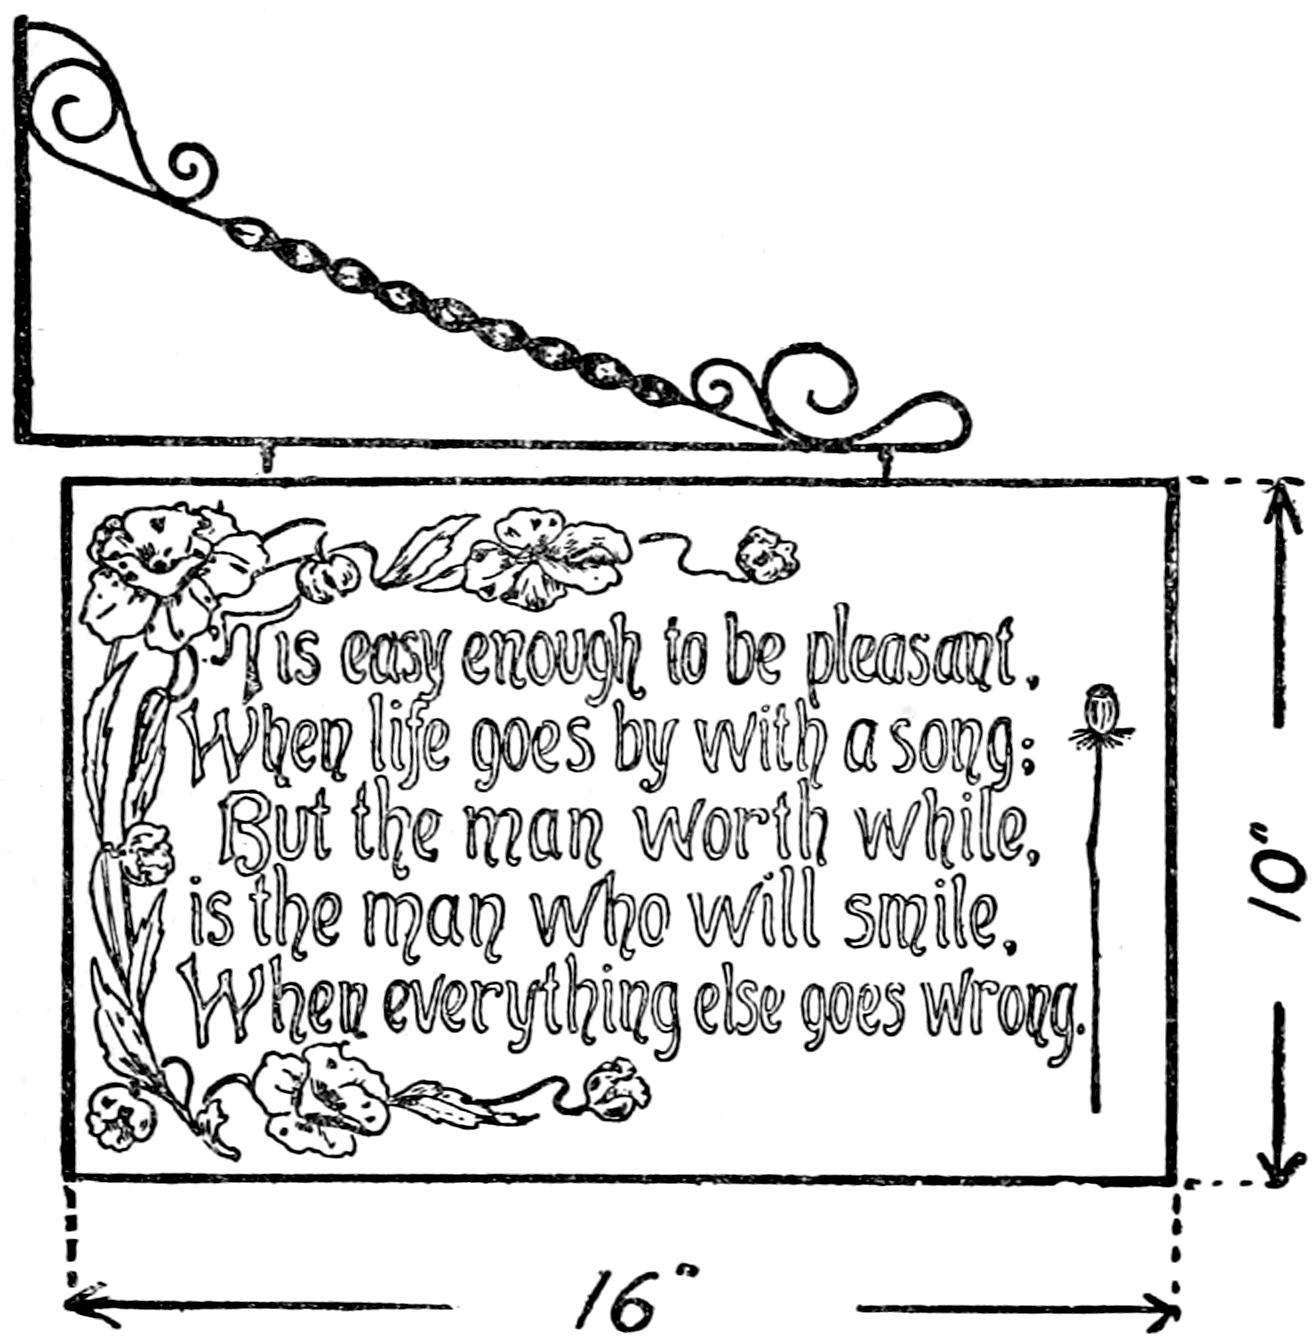 'Tis easy enough to be pleasant,
When life goes by with a song;
But the man worth while,
is the man who will smile,
When everything else goes wrong.
10"
16"